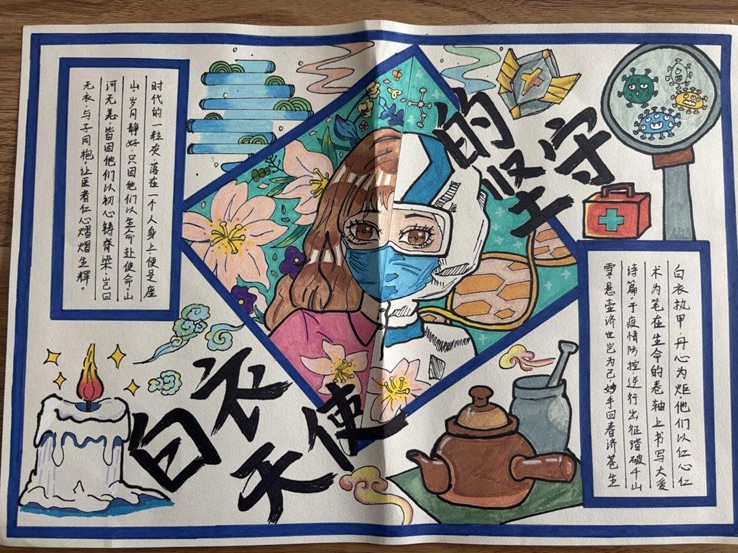 白衣
天使
的坚守
时代的一粒灰·落在一个人身上便是座
山·岁月静好·只因他们以生命赴使命·山
河无恙·皆因他们以初心铸脊梁·岂曰
无衣·与子同袍·让医者仁心熠熠生辉。
白衣执甲·丹心为炬·他们以仁心仁
术为笔在生命的卷轴上书写大爱
诗篇·于疫情防控·逆行出征踏破千山
雪·悬壶济世岂为己妙手回春济苍生